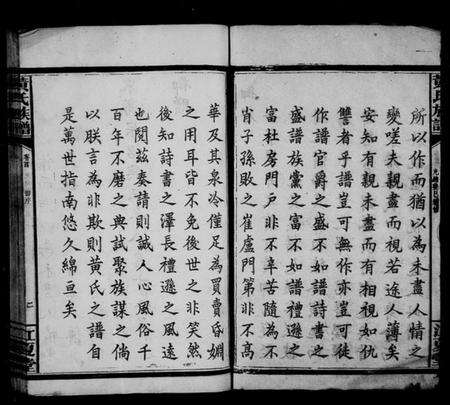 所以作而猶以為未盡人情之
變嗟夫親盡而視若途人薄矣
安知有親未盡而有相視如仇
讐者乎譜豈可無作亦豈可徒
作譜官爵之盛不如譜詩書之
盛譜族黨之富不如譜禮遜之
富杜房門戶非不辛苦隨為不
肖子孫敗之崔盧門第非不高
華及其衰冷僅足為買賣婚姻
之用耳皆不免後世之非笑然
後知詩書之澤長禮遜之風遠
也閱茲奏請則誠人心風俗千
百年不磨之典試聚族謀之倘
以朕言為非欺則黃氏之譜自
是萬世指南悠久綿亘矣
黃氏族譜
卷首